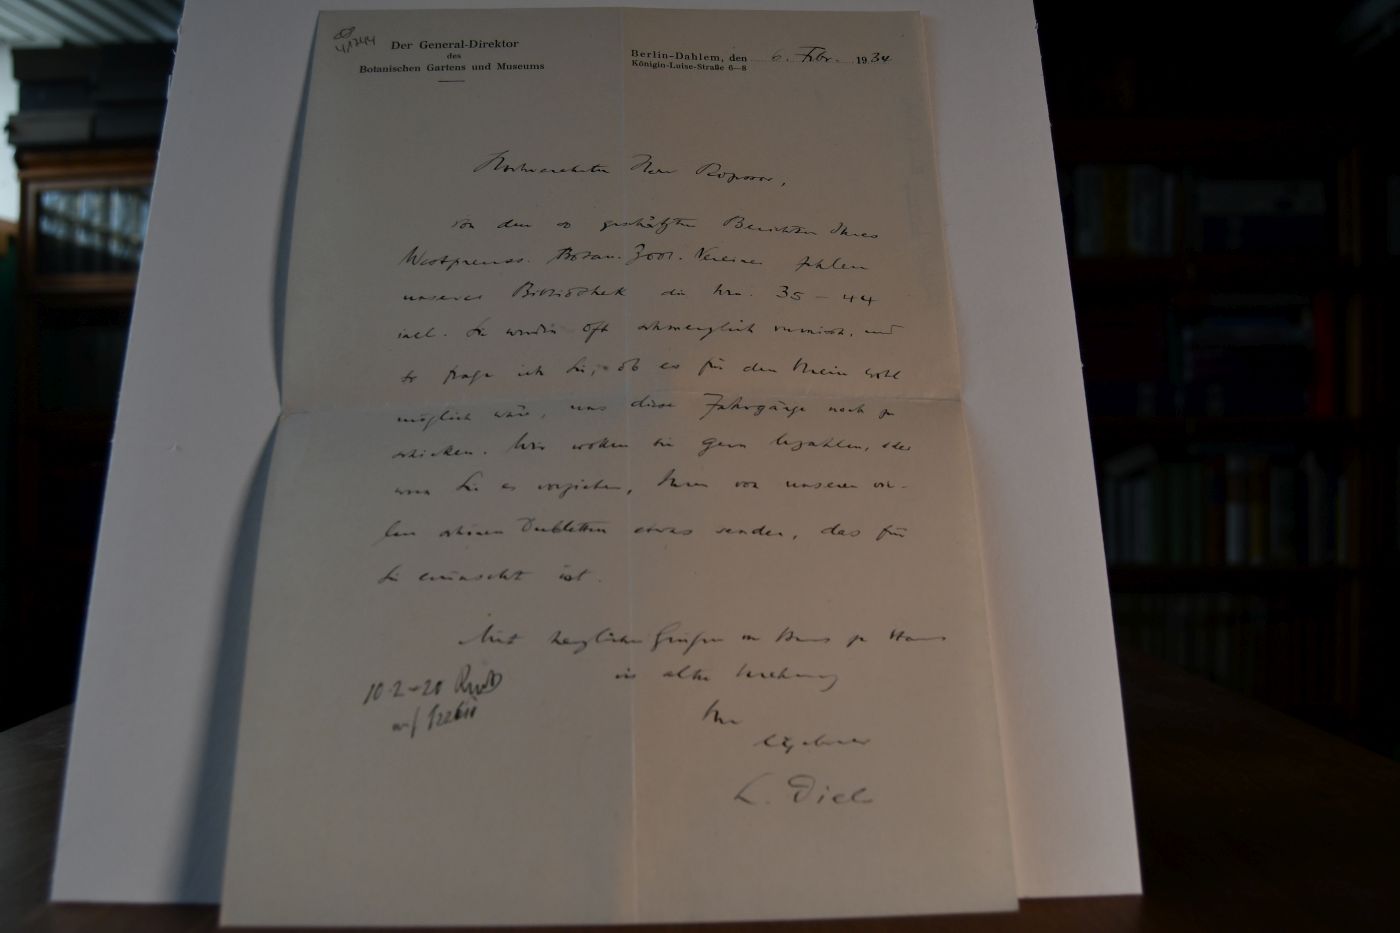 Der General-Direktor
des
Botanischen Gartens und Museums
Berlin-Dahlem, den 6. Febr. 1934
Königin-Luise-Straße 6—8
Hochverehrter Herr Professor,
Von den so geschätzten Berichten Ihres
Westpreuss. Botan. Zool. Vereines fehlen
unserer Bibliothek die Nrn. 35 – 44
incl. Sie werden oft schmerzlich vermisst, und
so frage ich Sie, ob es für den Verein wohl
möglich wäre, uns diese Jahrgänge noch zu
schicken. Wir wollen sie gern bezahlen, oder
wenn Sie es vorziehen, Ihnen von unseren vie-
len schönen Dubletten etwas senden, das für
Sie erwünscht ist.
Mit herzlichen Grüßen von Haus zu Haus
in alter Verehrung
Ihr
ergebener
L. Diels
10.2